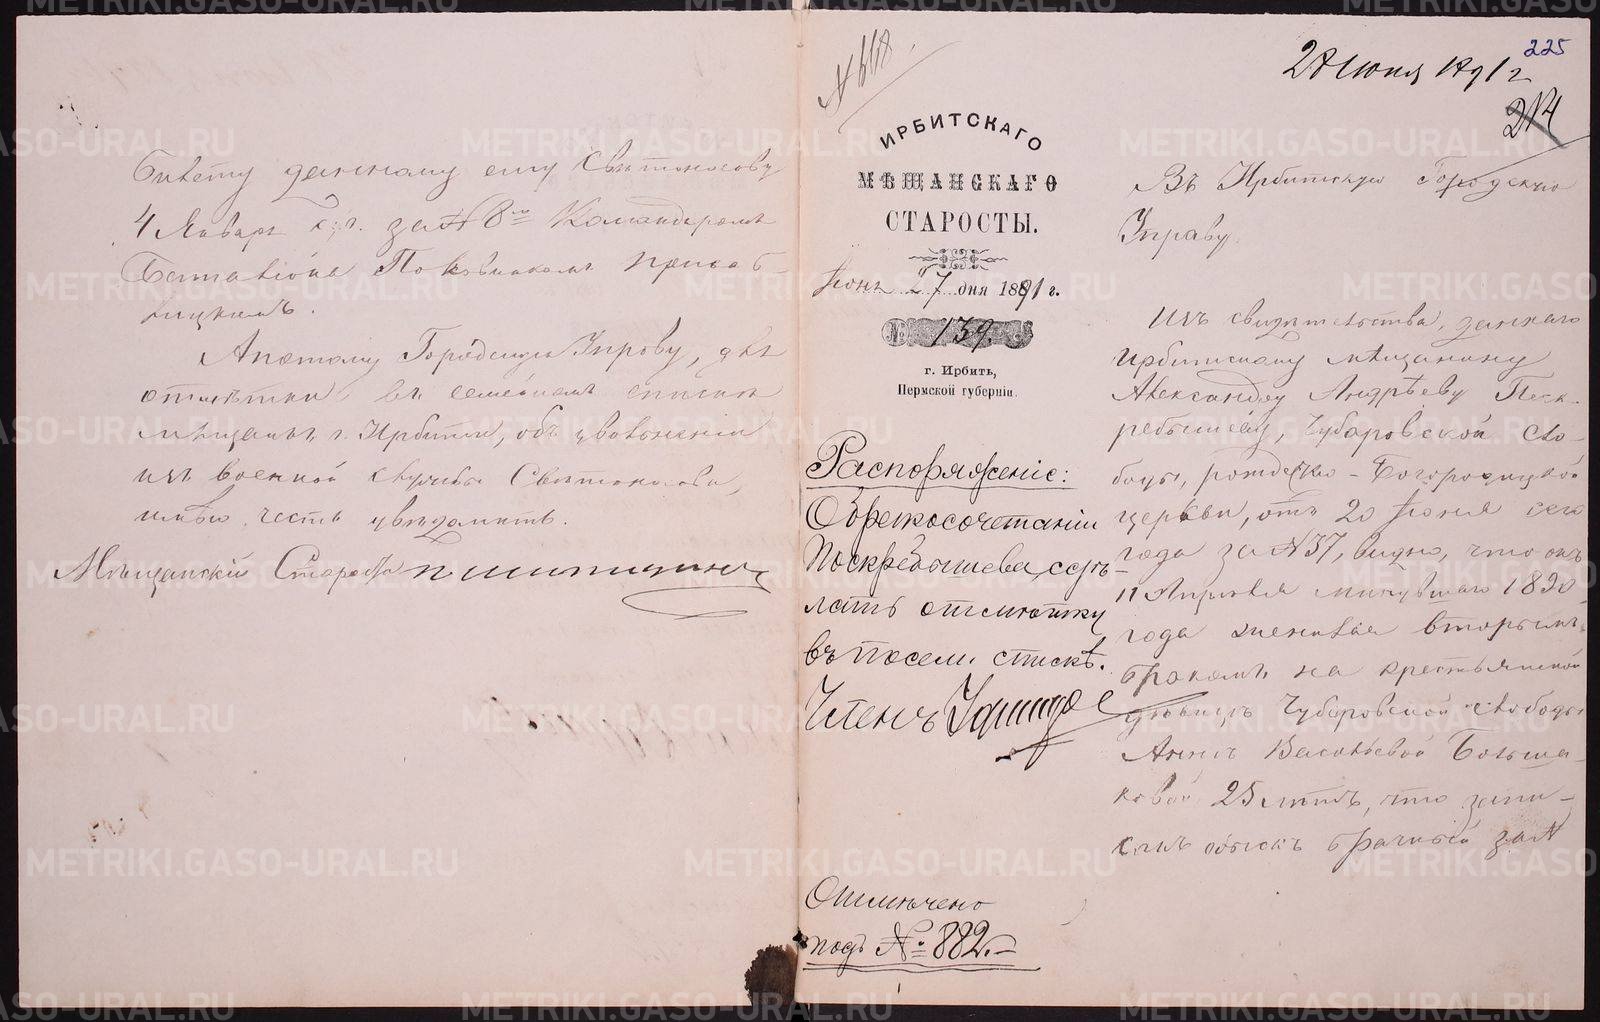 билету данному ему Свѣтоносову
4 Января с/г. за № 8м Командиромъ
Баталіона Полковникомъ
А потому Городскую Управу, для
отмѣтки въ семейномъ спискѣ
мѣщанъ г. Ирбити, объ увольненіи
изъ военной службы Свѣтоносова,
имѣю честь увѣдомить.
Мѣщанскій Староста
28 Июня 1891 г
225
214
№ 668
ИРБИТСКАГО
МѢЩАНСКАГО
СТАРОСТЫ.
Іюня 27 дня 1891 г.
№ 139.
г. Ирбить,
Пермской губерніи.
Распоряженіе:
О бракосочетаніи
Поскребышева, сдѣ-
лать отмѣтку
въ посем. спискѣ.
Членъ
Отмѣчено
подъ № 882.
Въ Ирбитскую Городскую
Управу
Изъ свидѣтельства, даннаго
Ирбитскому мѣщанину
Александру Андрѣеву Поск-
ребышеву, Чубаровской сло-
боды, рождество-Богородицкой
церкви, отъ 20 Іюня сего
года за № 37, видно, что онъ
11 Апрѣля минувшаго 1890
года женился вторымъ
бракомъ на крестьянской
дѣвицѣ Чубаровской слободы
Аннѣ Васильевой Больша-
ковой 25 лѣтъ, что запи-
санъ обыскъ брачный за №